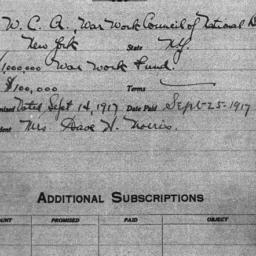 W. C. A. War Work Council of National B
New York State N.Y.
1,000,000 War Work Fund.
$100,000 Terms
Voted Sept 14, 1917 Date Paid Sept-25-1917
dent Mrs Dave H. Morris.
ADDITIONAL SUBSCRIPTIONS
OUNT PROMISED PAID OBJECT